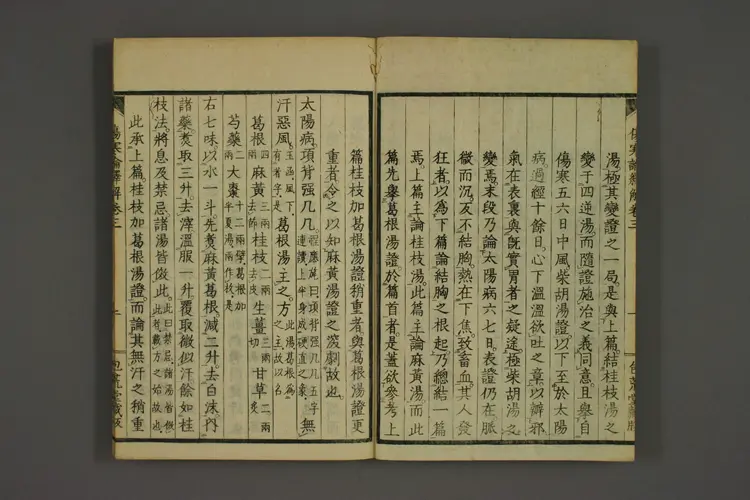 傷寒論繹解卷三
湯極其變證之一局是與上篇結桂枝湯之
變于四逆湯而隨證施治之義同意且舉自
傷寒五六日中風柴胡湯證以下至於太陽
病過經十餘日心下溫溫欲吐之章以辨邪
氣在表裏與既實胃者之疑途極柴胡湯之
變焉末段乃論太陽病六七日表證仍在脈
微而沉反不結胸熱在下焦致畜血其人發
狂者以爲下篇論結胸之根起乃總結一篇
焉上篇主論桂枝湯此篇主論麻黃湯而此
篇先舉葛根湯證於篇首者是蓋欲參考上
篇桂枝加葛根湯證稍重者與葛根湯證更
重者令之以知麻黃湯證之冣劇故也
太陽病項背强几几程應旄曰項背强几几五字連讀上半身成硬直之象無
汗惡風玉函風下有者字是葛根湯主之方此湯葛根爲之主故以名
葛根四兩麻黃三兩去節桂枝二兩去皮生薑三兩切甘草二兩炙
芍藥二兩大棗十二兩擘葛根加半夏湯兩作枚是
右七味以水一斗先煮麻黃葛根減二升去白沫内
諸藥煮取三升去滓溫服一升覆取微似汗餘如桂
枝法將息及禁忌諸湯皆倣此
此承上篇桂枝加葛根湯證而論其無汗之稍重
傷寒論繹解卷三